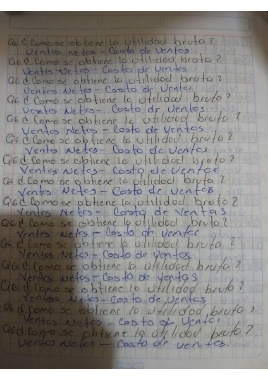 Q6 ¿Como se obtiene la utilidad bruta?
Ventas netas - Costo de Ventas
Q6 ¿Como se obtiene la utilidad bruta?
Ventas Netas - Costo de Ventas
Q6 ¿Como se obtiene la utilidad bruta?
Ventas Netas - Costo de Ventas
Q6 ¿Como se obtiene la utilidad bruta?
Ventas Netas - Costo de Ventas
Q6 ¿Como se obtiene la utilidad bruta?
Ventas Netas - Costo de Ventas
Q6 ¿Como se obtiene la utilidad bruta?
Ventas Netas - Costo de Ventas
Q6 ¿Como se obtiene la utilidad bruta?
Ventas Netas - Costo de Ventas
Q6 ¿Como se obtiene la utilidad bruta?
Ventas Netas - Costo de Ventas
Q6 ¿Como se obtiene la utilidad bruta?
Ventas Netas - Costo de Ventas
Q6 ¿Como se obtiene la utilidad bruta?
Ventas Netas - Costo de Ventas
Q6 ¿Como se obtiene la utilidad bruta?
Ventas Netas - Costo de Ventas
Q6 ¿Como se obtiene la utilidad bruta?
Ventas Netas - Costo de Ventas
Q6 ¿Como se obtiene la utilidad bruta?
Ventas Netas - Costo de Ventas
Q6 ¿Como se obtiene la utilidad bruta?
Ventas Netas - Costo de Ventas